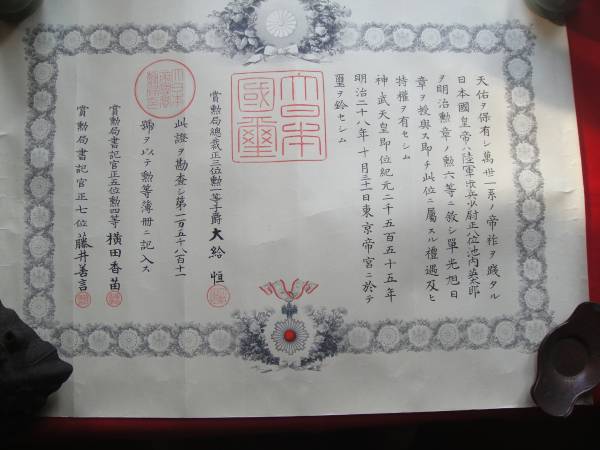 天佑ヲ保有シ萬世一系ノ帝祚ヲ踐タル
日本國皇帝ハ陸軍歩兵少尉正八位池内英太郎
ヲ明治勲章ノ勲六等ニ敘シ單光旭日
章ヲ授與ス即チ此位ニ屬スル禮遇及ヒ
特權ヲ有セシム
神武天皇即位紀元二千五百五十五年
明治二十八年十月三十一日東京帝宮ニ於テ
璽ヲ鈐セシム
大日本
國璽
賞勲局總裁正三位勲一等子爵大給恒
此證ヲ勘査シ第一万五千八百十一
號ヲ以テ勲等簿冊ニ記入ス
賞勲局書記官正五位勲四等横田香苗
賞勲局書記官正七位藤井善言